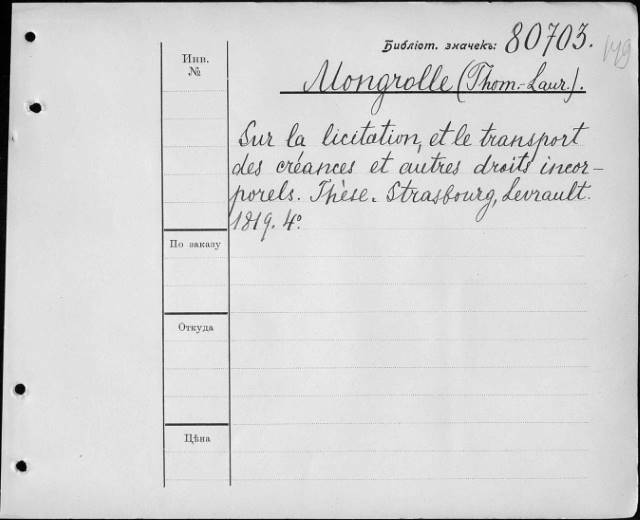 Библіот. значекъ: 80703.
149
Инв.
№
Mongrolle (Thom.-Laur.).
Sur la licitation, et le transport
des créances et autres droits incor-
porels. Thèse. Strasbourg, Levrault.
1819. 4º.
По заказу
Откуда
Цѣна